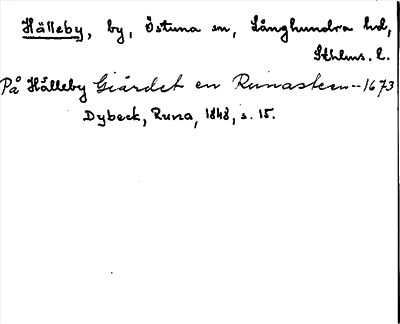 Hälleby, by, Östuna sn, Långhundra hd,
Sthlms. l.
På Hälleby Giärdet en Runasteen -- 1673
Dybeck, Runa, 1848, s. 15.